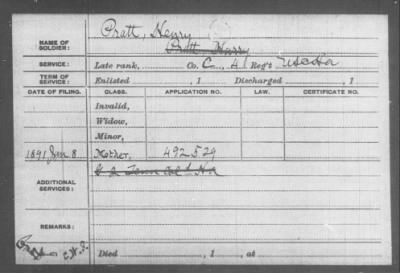 Pratt, Henry
NAME OF SOLDIER:
Pratt Harry
SERVICE: Late rank, Co. C, 4 Reg't US Col
TERM OF SERVICE: Enlisted , 1 Discharged , 1
DATE OF FILING. CLASS. APPLICATION NO. LAW. CERTIFICATE NO.
Invalid,
Widow,
Minor,
1891 Jan 8 Mother, 492529
ADDITIONAL SERVICES:
REMARKS:
Died , 1 , at